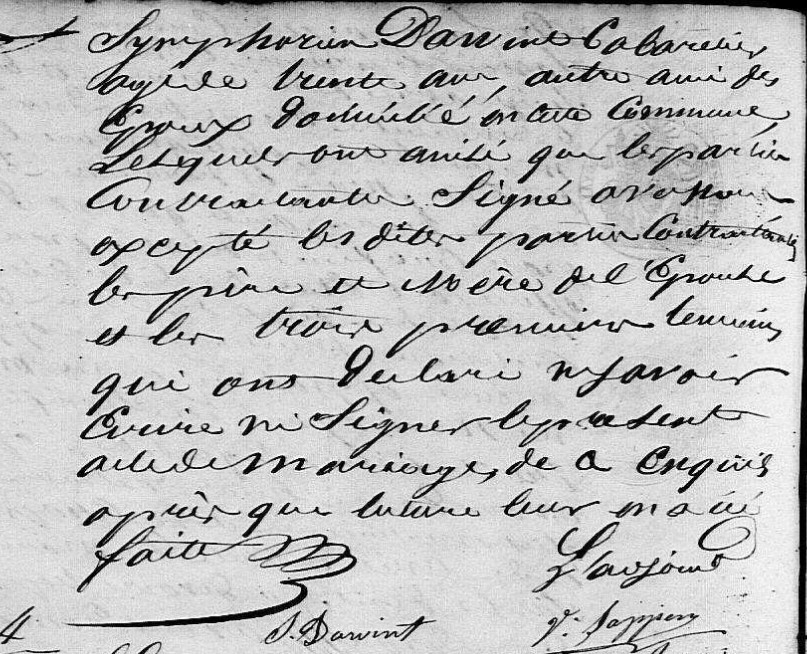 Symphorien Darvint Cabaretier
agé de trente ans, autre ami des
Epoux domicilié en cette Commune,
Lesquels ont assisté que les parties
Contractantes Signé avec nous
excepté les dites parties Contractantes
les père et Mère de l'Epouse
et les trois premiers temoins
qui ont declaré n savoir
Ecrire ni Signer le present
acte de Mariage, de ce Enquis
après que lecture leur en a été
faite
S. Darvint
4